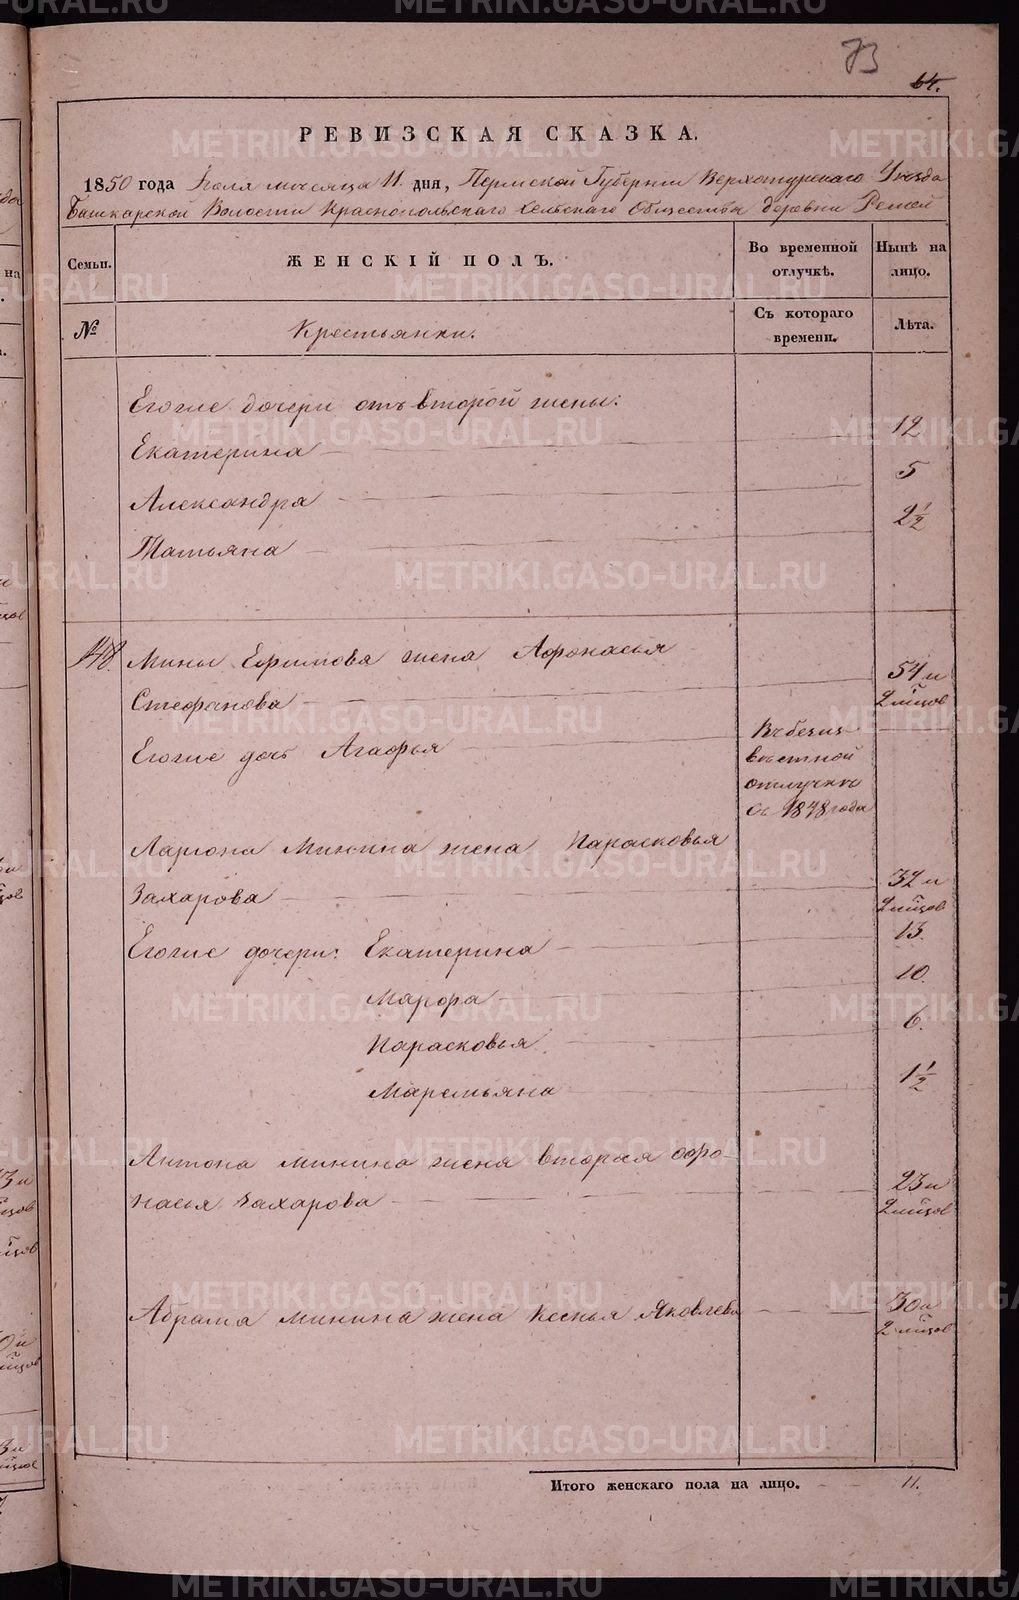 73
64.
РЕВИЗСКАЯ СКАЗКА.
1850 года Июля месяца 11 дня, Пермской Губернии Верхотурскаго Уезда
Башкарской Волости Краснопольскаго Сельскаго Общества деревни Решей
Семьи.
ЖЕНСКІЙ ПОЛЪ.
Во временной отлучкѣ.
Нынѣ на лицо.
№
Крестьянки.
Съ котораго времени.
Лѣта.
Егоже дочери отъ второй жены:
Екатерина 12
Александра 5
Татьяна 2½
48. Мины Ефимова жена Афонасья
Стефанова 54 и 2 мцов
Егоже дочь Агафья Въ безиз-
вестной
отлучке
съ 1848 года
Лариона Минина жена Парасковья
Захарова 32 и 2 мцов
Егоже дочери: Екатерина 13.
Марфа 10.
Парасковья 6.
Маремьяна 1½
Антона Минина жена вторая Офо-
насья Захарова 23 и 2 мцов
Абрама Минина жена Ксенья Яковлева 30 и 2 мцов
Итого женскаго пола на лицо. 11.
METRIKI.GASO-URAL.RU